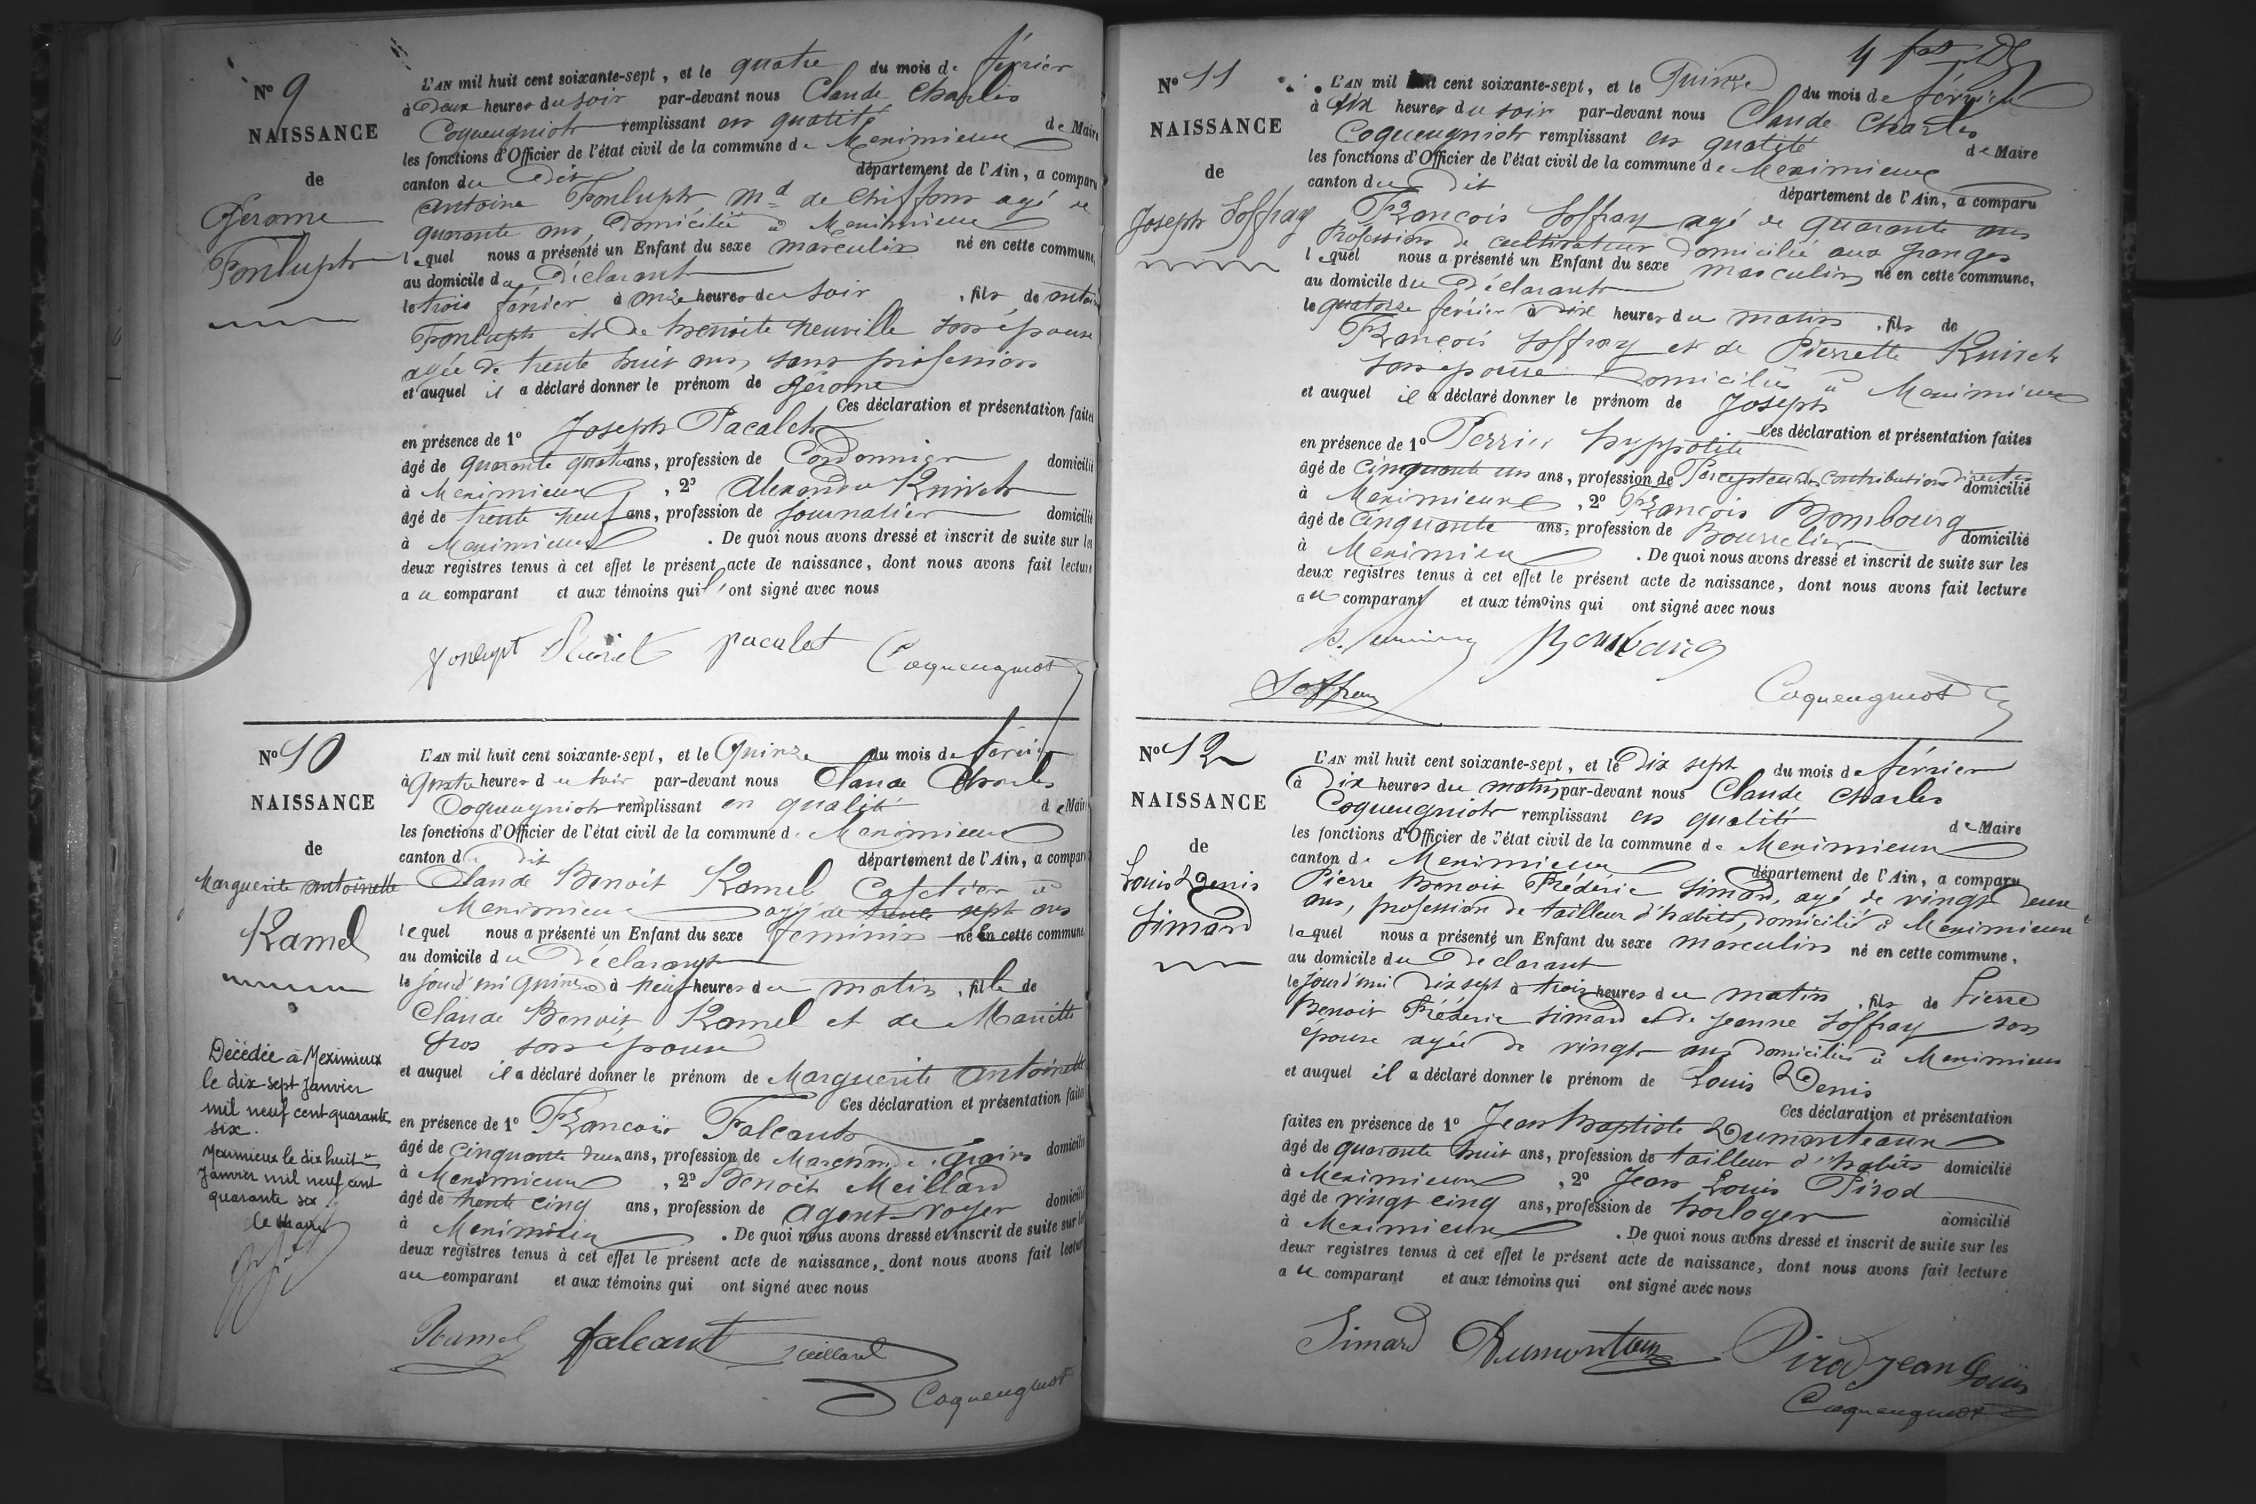 N° 9
NAISSANCE
de
Gérome
Fonlupt
L'AN mil huit cent soixante-sept, et le quatre du mois de février
à Deux heures du soir par-devant nous Claude Charles
Coqueugniot remplissant en qualité de Maire
les fonctions d'Officier de l'état civil de la commune de Meximieux
canton du dit département de l'Ain, a comparu
Antoine Fonlupt, Md de chiffons agé de
quarante ans, Domicilié à Meximieux
lequel nous a présenté un Enfant du sexe masculin né en cette commune,
au domicile du Déclarant
le trois février à onze heures du soir, fils de Antoine
Fonlupt et de Benoite Neuville son épouse
agée de trente huit ans, sans profession
et auquel il a déclaré donner le prénom de Gérome
Ces déclaration et présentation faites
en présence de 1° Joseph Pacalet
âgé de quarante quatre ans, profession de Cordonnier domicilié
à Meximieux, 2° Alexandre
âgé de trente neuf ans, profession de journalier domicilié
à Meximieux. De quoi nous avons dressé et inscrit de suite sur les
deux registres tenus à cet effet le présent acte de naissance, dont nous avons fait lecture
au comparant et aux témoins qui l'ont signé avec nous
fonlupt pacalet Coqueugniot
N° 10
NAISSANCE
de
Marguerite Antoinette
Ramel
Décédée à Meximieux
le dix sept Janvier
mil neuf cent quarante
six.
Meximieux le dix huit
Janvier mil neuf cent
quarante six.
Le Maire
L'AN mil huit cent soixante-sept, et le Quinze du mois de février
à quatre heures du soir par-devant nous Claude Charles
Coqueugniot remplissant en qualité de Maire
les fonctions d'Officier de l'état civil de la commune de Meximieux
canton du dit département de l'Ain, a comparu
Claude Benoit Ramel Cafetier à
Meximieux agé de trente sept ans
lequel nous a présenté un Enfant du sexe féminin né en cette commune
au domicile du Déclarant
le jourd'hui quinze à neuf heures du matin, fille de
Claude Benoit Ramel et de Mariette
Gros son épouse
et auquel il a déclaré donner le prénom de Marguerite Antoinette
Ces déclaration et présentation faites
en présence de 1° François Falcant
âgé de cinquante deux ans, profession de Marchand de Grains domicilié
à Meximieux, 2° Benoit Meillard
âgé de trente cinq ans, profession de Agent-Voyer domicilié
à Meximieux. De quoi nous avons dressé et inscrit de suite sur les
deux registres tenus à cet effet le présent acte de naissance, dont nous avons fait lecture
au comparant et aux témoins qui ont signé avec nous
Ramel falcant Meillard
Coqueugniot
N° 11
NAISSANCE
de
Joseph Soffray
L'AN mil huit cent soixante-sept, et le Quinze du mois de février
à six heures du soir par-devant nous Claude Charles
Coqueugniot remplissant en qualité de Maire
les fonctions d'Officier de l'état civil de la commune de Meximieux
canton du dit département de l'Ain, a comparu
François Soffray agé de quarante ans
Profession de cultivateur domicilié aux granges
lequel nous a présenté un Enfant du sexe masculin né en cette commune,
au domicile du Déclarant
le quatorze février à dix heures du matin, fils de
François Soffray et de Pierrette
son épouse domiciliée à Meximieux
et auquel il a déclaré donner le prénom de Joseph
Ces déclaration et présentation faites
en présence de 1° Perrier hyppolite
âgé de cinquante un ans, profession de Percepteur des Contributions Directes domicilié
à Meximieux, 2° François Bombourg
âgé de cinquante ans, profession de Bourrelier domicilié
à Meximieu. De quoi nous avons dressé et inscrit de suite sur les
deux registres tenus à cet effet le présent acte de naissance, dont nous avons fait lecture
au comparant et aux témoins qui ont signé avec nous
Bombourg
Soffray Coqueugniot
N° 12
NAISSANCE
de
Louis Denis
Simard
L'AN mil huit cent soixante-sept, et le Dix sept du mois de février
à Dix heures du matin par-devant nous Claude Charles
Coqueugniot remplissant en qualité de Maire
les fonctions d'Officier de l'état civil de la commune de Meximieux
canton de Meximieux département de l'Ain, a comparu
Pierre Benoit Frédéric Simard, agé de vingt deux
ans, profession de tailleur d'habits, domicilié à Meximieux
lequel nous a présenté un Enfant du sexe masculin né en cette commune,
au domicile du Déclarant
le jourd'hui Dix sept à trois heures du matin, fils de Pierre
Benoit Frédéric Simard et de Jeanne Soffray son
épouse agée de vingt ans domiciliés à Meximieux
et auquel il a déclaré donner le prénom de Louis Denis
Ces déclaration et présentation
faites en présence de 1° Jean Baptiste Dumonteaux
âgé de quarante huit ans, profession de tailleur d'habits domicilié
à Meximieux, 2° Jean Louis Pirod
âgé de vingt cinq ans, profession de horloger domicilié
à Meximieux. De quoi nous avons dressé et inscrit de suite sur les
deux registres tenus à cet effet le présent acte de naissance, dont nous avons fait lecture
au comparant et aux témoins qui ont signé avec nous
Simard Dumonteau Pirod jean Louis
Coqueugniot